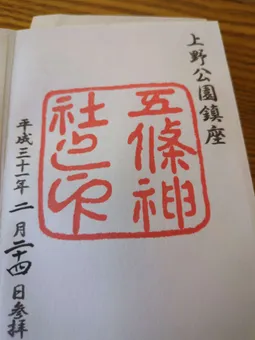 上野公園鎮座
五條神
社之印
平成三十一年二月二十四日参拝